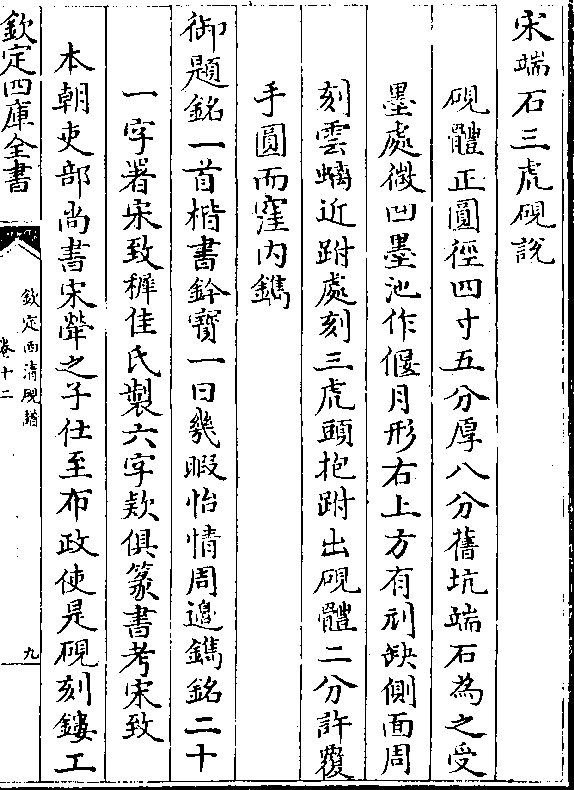 宋端石三虎硯說
硯體正圓徑四寸五分厚八分舊坑端石為之受
墨處微凹墨池作偃月形右上方有刓缺側面周
刻雲螭近跗處刻三虎頭抱跗出硯體二分許覆
手圓而窪内鐫
御題銘一首楷書鈐寶一曰㡬暇怡情周邉鐫銘二十
一字署宋致穉佳氏製六字欵俱篆書考宋致
本朝吏部尚書宋犖之子仕至布政使是硯刻鏤工
欽定四庫全書
欽定西清硯譜
卷十二
九